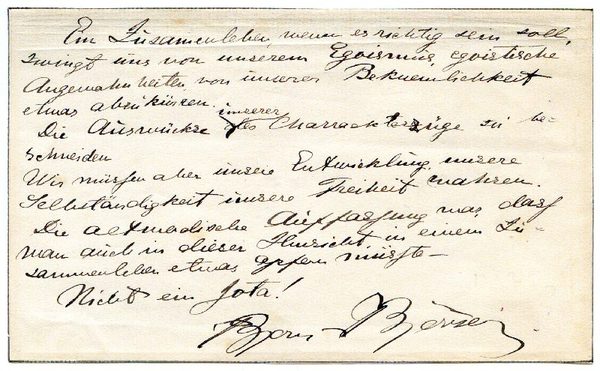 Ein Zusamenleben, wenn es richtig sein soll,
zwingt uns von unserem Egoismus, egoistische
Angewohnheiten, von unserer Bekuemlichkeit
etwas abzukürzen.
Die Auswückse unserer Charrackterzüge zu be-
schneiden
Wir müssen aber unsere Entwicklung, unsere
Selbständigkeit unsere Freiheit wahren.
Die altmodische Auffassung was darf
man auch in dieser Hinsicht in einem Zu-
sammenleben etwas opfern müsste—
Nicht ein Jota!
Björn Björnson